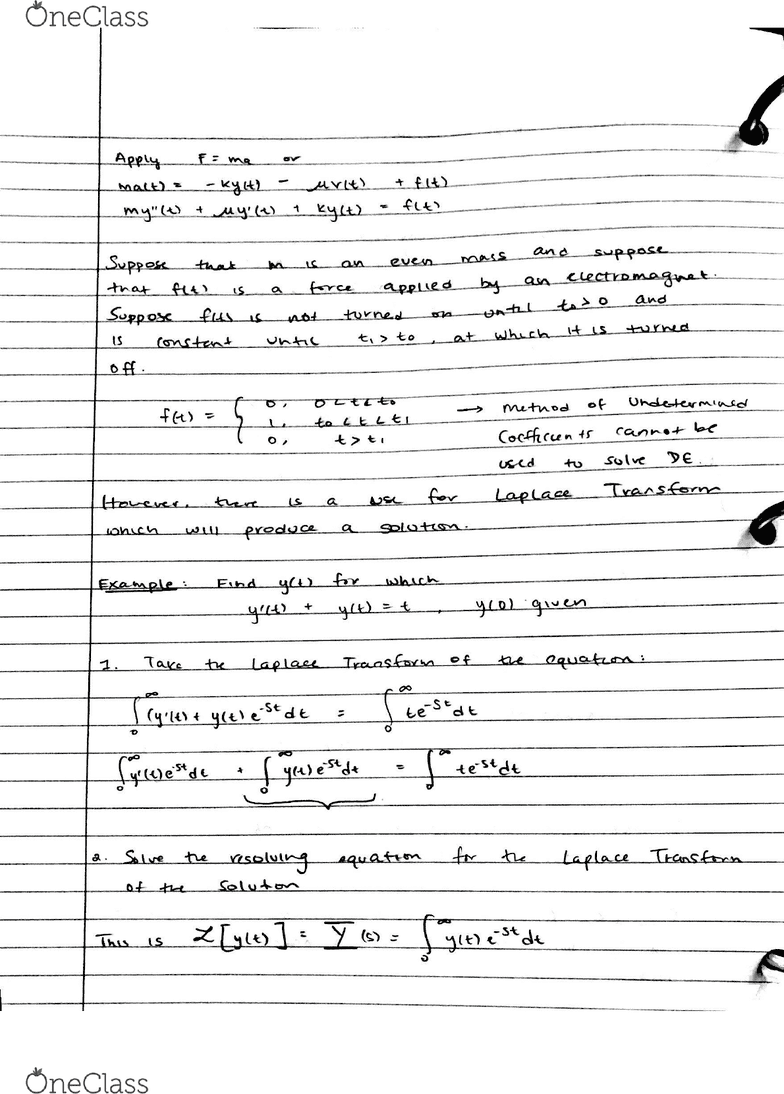 OneClass
Apply F = ma or
ma(t) = -ky(t) - μv(t) + f(t)
my''(t) + μy'(t) + ky(t) = f(t)
Suppose that m is an even mass and suppose
that f(t) is a force applied by an electromagnet.
Suppose f(t) is not turned on until t₀>0 and
is constant until t₁>t₀, at which it is turned
off.
f(t) = { 0, 0<t<t₀ → Method of Undetermined
1, t₀<t<t₁ Coefficients cannot be
0, t>t₁ used to solve DE.
However, there is a use for Laplace Transform
which will produce a solution.
Example: Find y(t) for which
y'(t) + y(t) = t, y(0) given
1. Take the Laplace Transform of the equation:
∫₀^∞ (y'(t) + y(t) e^-st dt = ∫₀^∞ te^-st dt
∫₀^∞ y'(t)e^-st dt + ∫₀^∞ y(t)e^-st dt = ∫₀^∞ te^-st dt
2. Solve the resolving equation for the Laplace Transform
of the Soluton
This is ℒ[y(t)] = Y(s) = ∫₀^∞ y(t) e^-st dt
OneClass